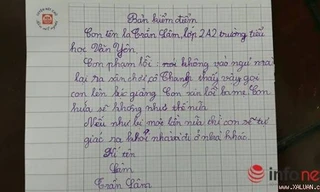 Bản kiểm điểm
Con tên là Trần Lâm, lớp 2A2 trường tiểu
học Văn Yên
Con phạm lỗi: không vào ngủ mà
lại ra sân chơi cô Thanh thấy gọi
con lên lục giảng Con xin lỗi ba mẹ. Con
hứa sẽ không như thế nữa
Nếu như bị một lần nữa thì con sẽ tự
giác ra khỏi nhà và ở nhà khác.
Kí tên
Lâm
Trần Lâm
infonet
www.XALUAN.com